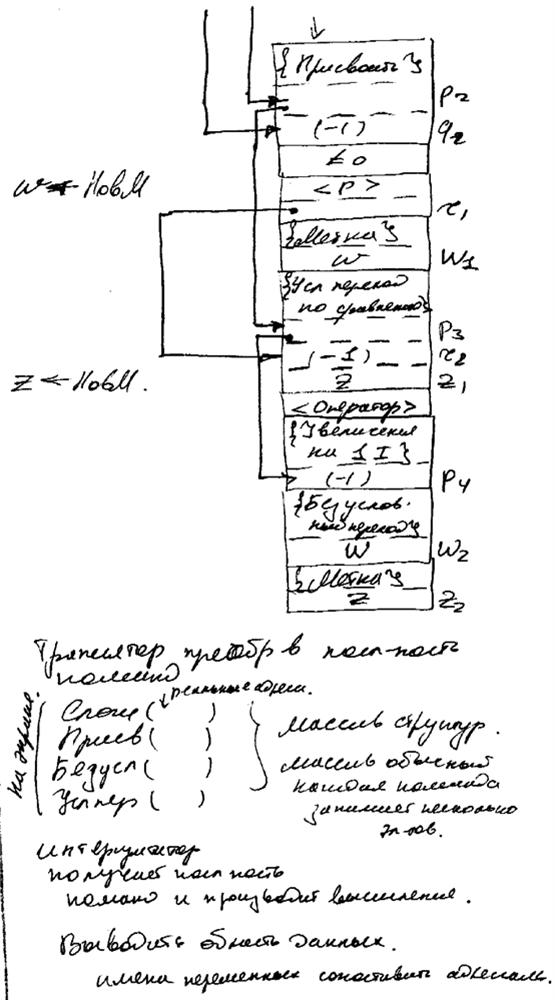 {Присвоить}
P2
(-1) q2
t0
w ← НовМ
<P>
τ1
{Метка}
w W1
{Усл переход
по сравнению}
P3
(-1) τ2
z ← НовМ.
Z Z1
<Оператор>
{Увеличения
на 1 I}
(-1) P4
{Безуслов-
ный переход}
W W2
{Метка}
Z Z2
Транслятор преобр в посл-ность
команд
реальные адреса.
на экране.
Слож ( )
Присв ( )
Безусл ( )
Услпер ( )
массив структур.
массив обычный
каждая команда
занимает несколько
эл-тов.
интерпретатор
получает посл-ность
команд и производит вычисления.
Выводить область данных.
имена переменных сопоставить адресам.